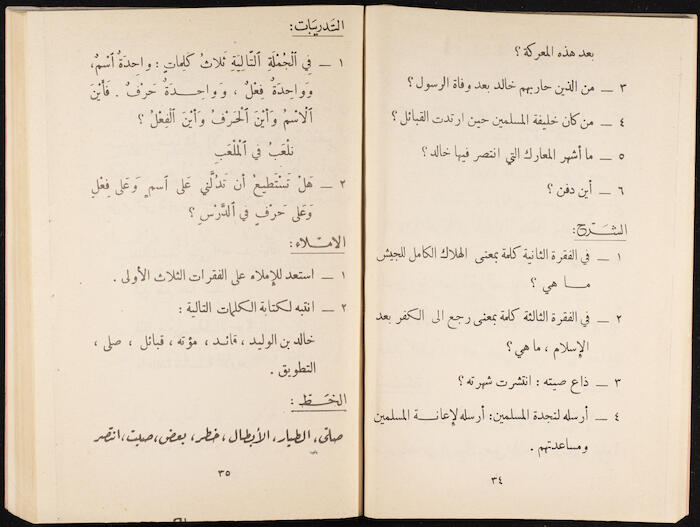 بعد هذه المعركة ؟
٣ ــ من الذين حاربهم خالد بعد وفاة الرسول ؟
٤ ــ من كان خليفة المسلمين حين ارتدت القبائل ؟
٥ ــ ما أشهر المعارك التي انتصر فيها خالد ؟
٦ ــ أين دفن ؟
الشرح :
١ ــ في الفقرة الثانية كلمة بمعنى الهلاك الكامل للجيش
ما هي ؟
٢ ــ في الفقرة الثالثة كلمة بمعنى رجع الى الكفر بعد
الإسلام ، ما هي ؟
٣ ــ ذاع صيته : انتشرت شهرته ؟
٤ ــ أرسله لنجدة المسلمين : أرسله لإعانة المسلمين
ومساعدتهم .
٣٤
التدريبات :
١ ــ فِي ٱلْجُمْلَةِ ٱلتَّالِيَةِ ثَلَاثُ كَلِمَاتٍ : وَاحِدَةٌ اسْمٌ ،
وَوَاحِدَةٌ فِعْلٌ ، وَوَاحِدَةٌ حَرْفٌ . فَأَيْنَ
ٱلْاسْمُ وَأَيْنَ ٱلْحَرْفُ وَأَيْنَ ٱلْفِعْلُ ؟
نَلْعَبُ فِي ٱلْمَلْعَبِ
٢ ــ هَلْ تَسْتَطِيعُ أَن تَدُلَّنِي عَلَى اسمٍ وَعَلَى فِعْلٍ
وَعَلَى حَرْفٍ فِي ٱلدَّرْسِ ؟
الاملاء :
١ ــ استعد للإملاء على الفقرات الثلاث الأولى .
٢ ــ انتبه لكتابة الكلمات التالية :
خالد بن الوليد ، قائد ، مؤته ، قبائل ، صلى ،
التطويق .
الخط :
صلّى ، الطيار ، الأبطال ، خطر ، بعض ، صيت ، انتصر
٣٥